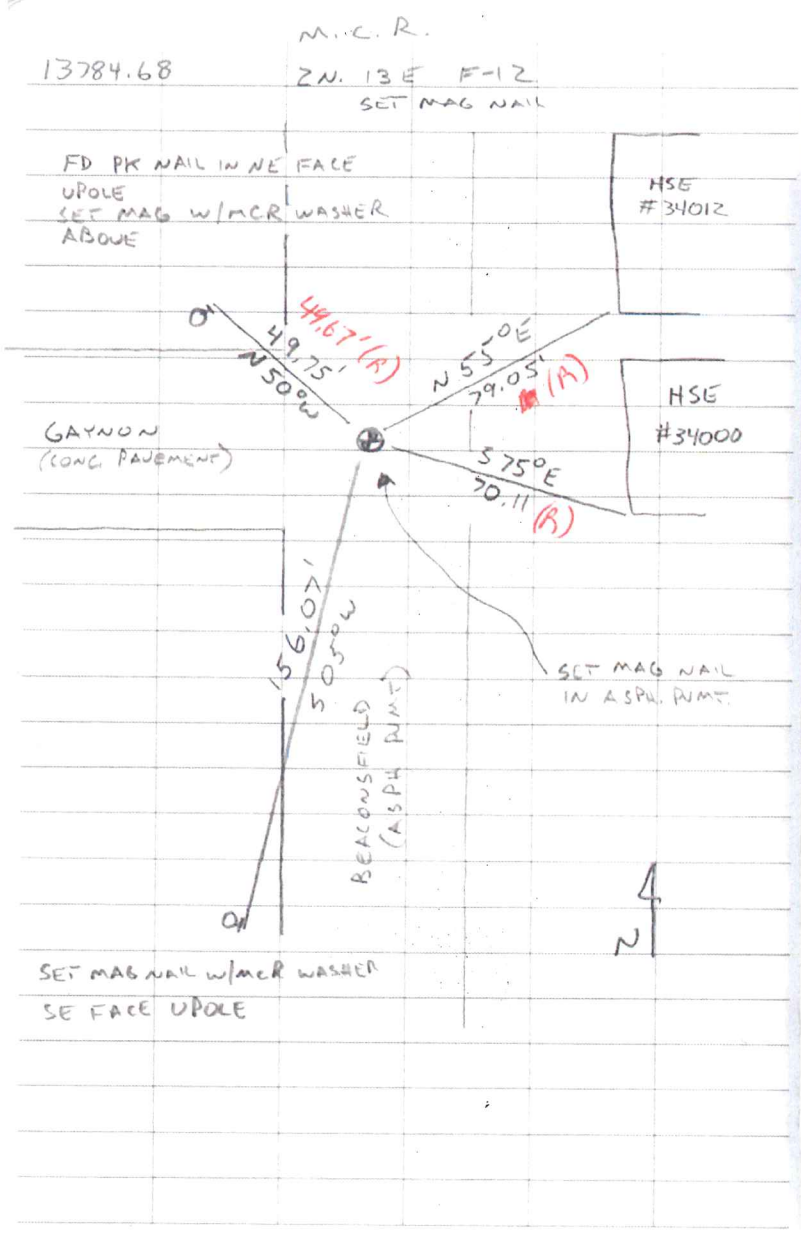 M.C.R.
13784.68
2N. 13E F-12
SET MAG NAIL
FD PK NAIL IN NE FACE
UPOLE
SET MAG W/MCR WASHER
ABOVE
HSE
#34012
49.67' (R)
49.75'
N50°W
N55°E
79.05'
(R)
HSE
#34000
GAYNON
(CONC. PAVEMENT)
S75°E
70.11
(R)
156.07'
S05°W
SET MAG NAIL
IN ASPH. PVMT.
BEACONSFIELD
(ASPH PVMT)
N
SET MAG NAIL W/MCR WASHER
SE FACE UPOLE